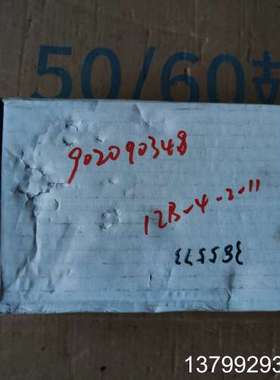 50/60
902090348
12B-4-2-11
365573
13799293